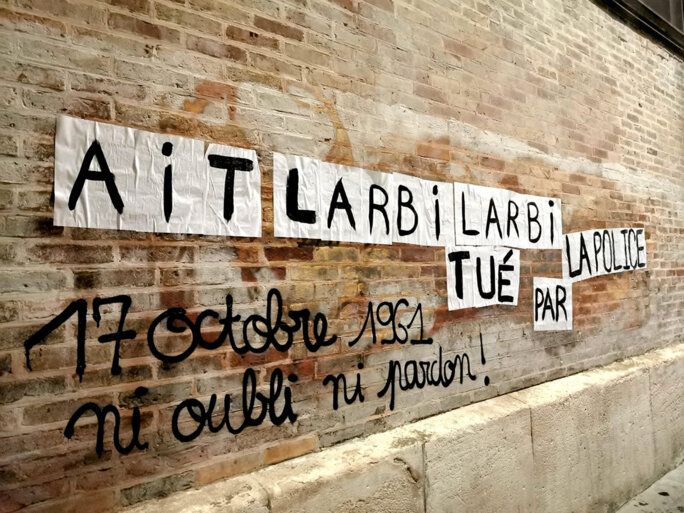 AiT LARBi LARBi
TUÉ PAR LA POLICE
17 Octobre 1961
ni oubli ni pardon !